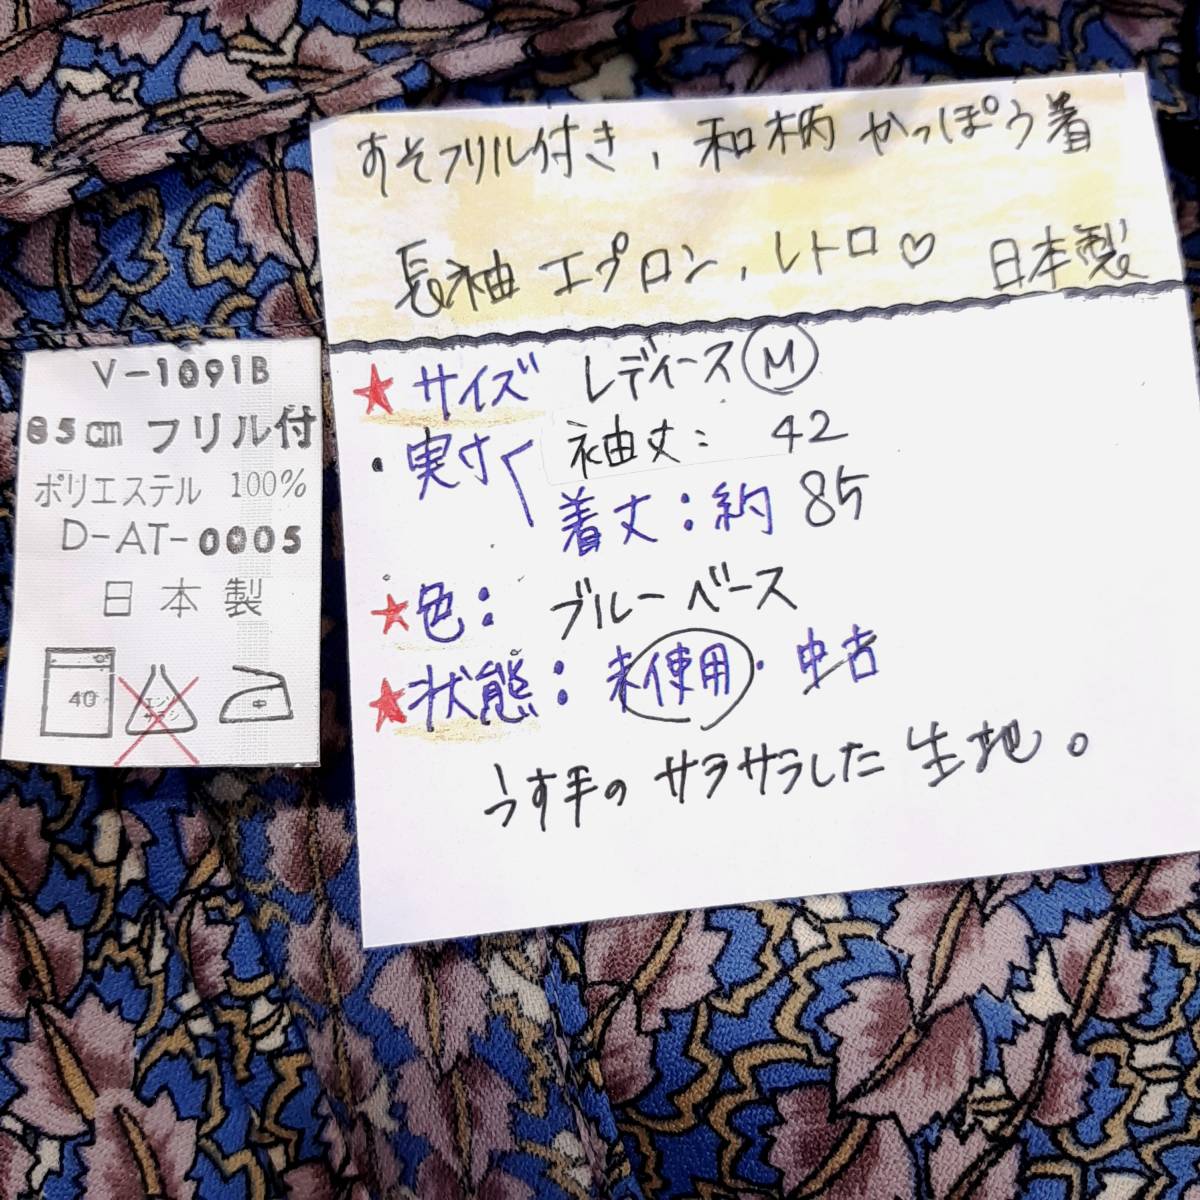 すそフリル付き、和柄 かっぽう着
長袖 エプロン、レトロ♡ 日本製
★サイズ レディース Ⓜ
・実寸く 袖丈: 42
着丈:約 85
★色: ブルーベース
★状態:未使用・中古
うす手の サラサラした 生地。
V-1091B
85cm フリル付
ポリエステル 100%
D-AT-0005
日本製
40
エンソ
サラシ